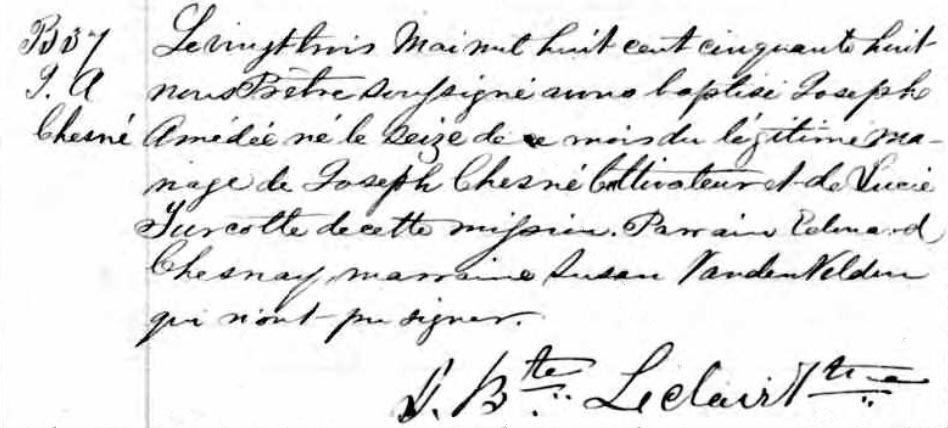 B37
J. A
Chesné
Le vingt trois Mai mil huit cent cinquante huit
nous Prêtre soussigné avons baptisé Joseph
Amédée né le seize de ce mois du légitime ma-
riage de Joseph Chesné Cultivateur et de Lucie
Turcotte de cette mission. Parrain Edouard
Chesnay marraine Susan VandenVelden
qui n'ont pu signer.
J. Bte Leclair Ptre